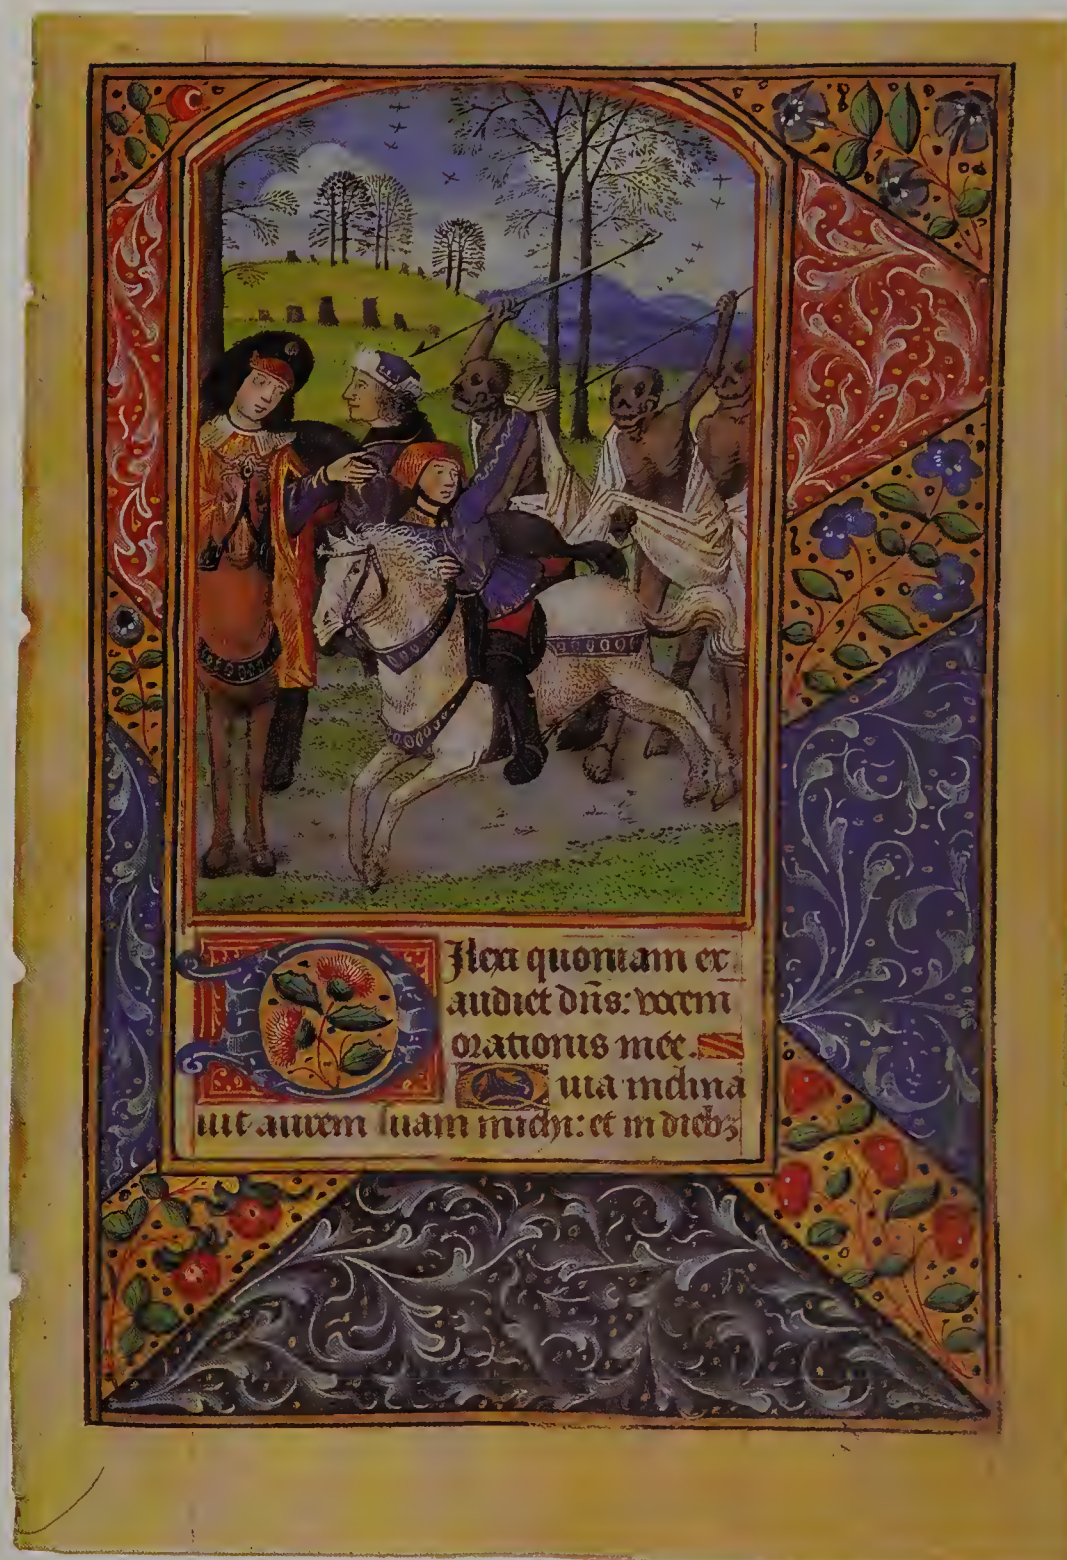 Dilexi quoniam ex
audiet dñs: vocem
orationis mee.
Quia inclina
uit aurem suam michi: et in dieb⁊